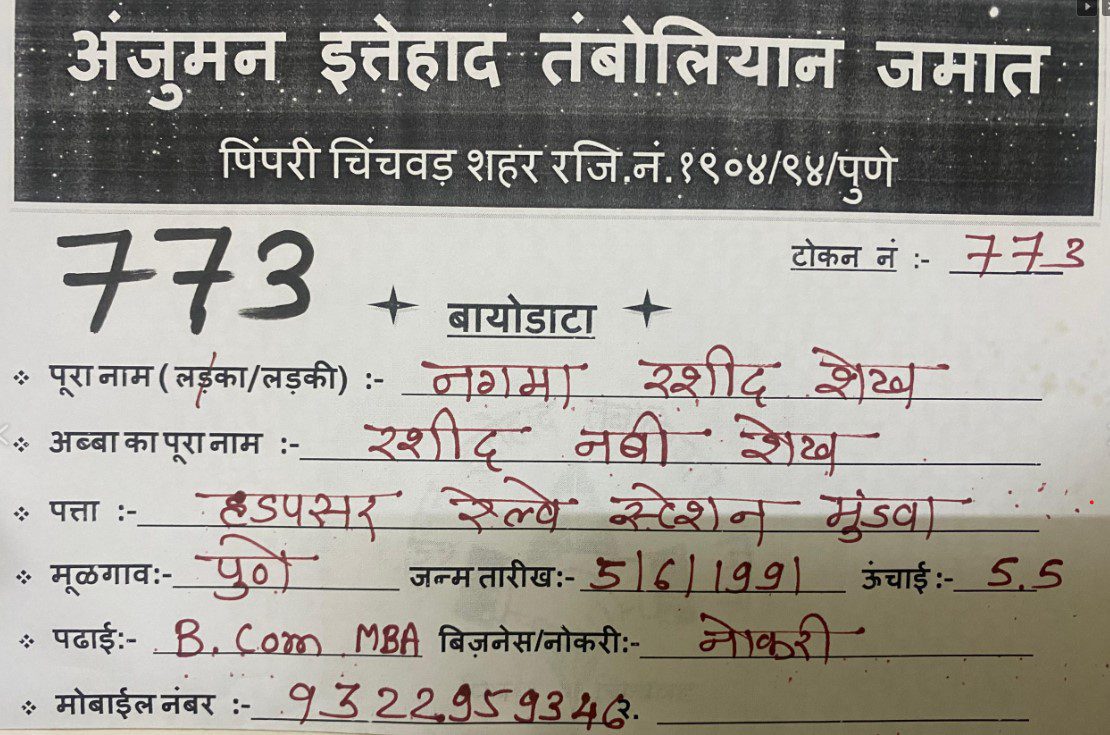 अंजुमन इत्तेहाद तंबोलियान जमात
पिंपरी चिंचवड़ शहर रजि.नं.१९०४/९४/पुणे
773 टोकन नं :- 773
बायोडाटा
पूरा नाम ( लड़का/लड़की) :- नगमा रशीद शेख
अब्बा का पूरा नाम :- रशीद नबी शेख
पत्ता :- हडपसर रेल्वे स्टेशन मुंडवा
मूळगाव:- पुणे जन्म तारीख:- 5/6/1991 ऊंचाई :- 5.5
पढाई:- B. Com MBA बिज़नेस/नोकरी:- नोकरी
मोबाईल नंबर :- 9322959346 २.